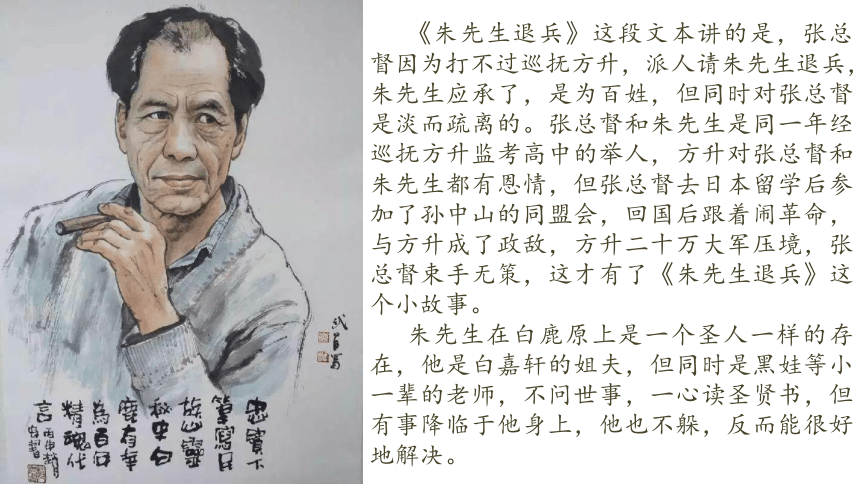 《朱先生退兵》这段文本讲的是，张总
督因为打不过巡抚方升，派人请朱先生退兵，
朱先生应承了，是为百姓，但同时对张总督
是淡而疏离的。张总督和朱先生是同一年经
巡抚方升监考高中的举人，方升对张总督和
朱先生都有恩情，但张总督去日本留学后参
加了孙中山的同盟会，回国后跟着闹革命，
与方升成了政敌，方升二十万大军压境，张
总督束手无策，这才有了《朱先生退兵》这
个小故事。
朱先生在白鹿原上是一个圣人一样的存
在，他是白嘉轩的姐夫，但同时是黑娃等小
一辈的老师，不问世事，一心读圣贤书，但
有事降临于他身上，他也不躲，反而能很好
地解决。
忠实下
笔写民
族心灵
秘史白
鹿有幸
为百姓
精魂代
言